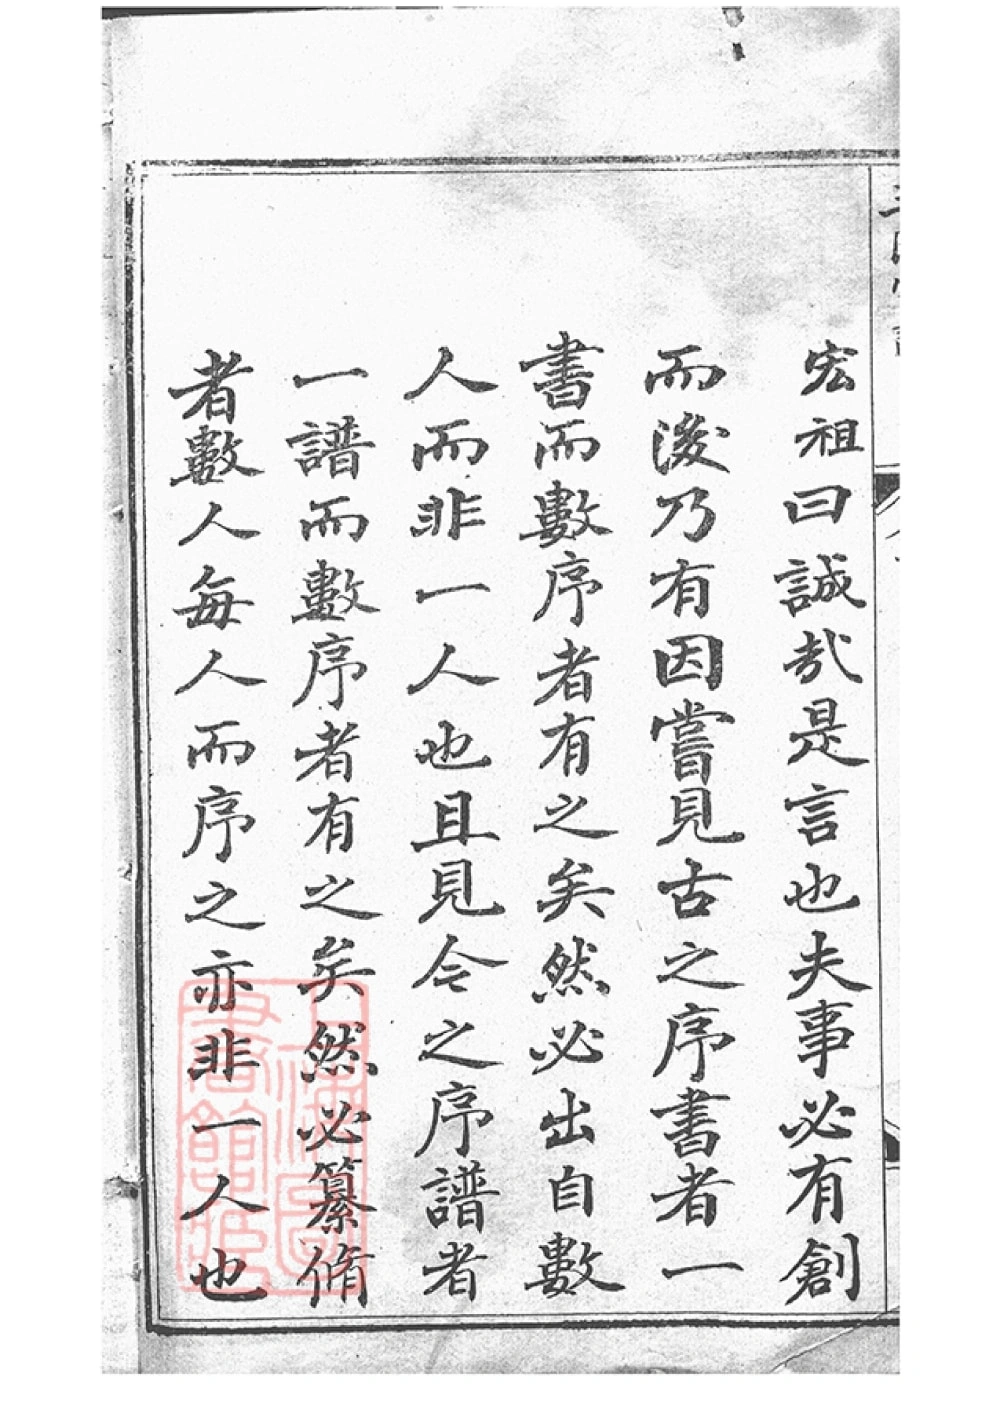 宏祖曰誠哉是言也夫事必有創
而後乃有因嘗見古之序書者一
書而數序者有之矣然必出自數
人而非一人也且見今之序譜者
一譜而數序者有之矣然必纂脩
者數人每人而序之亦非一人也
上海圖
書館藏